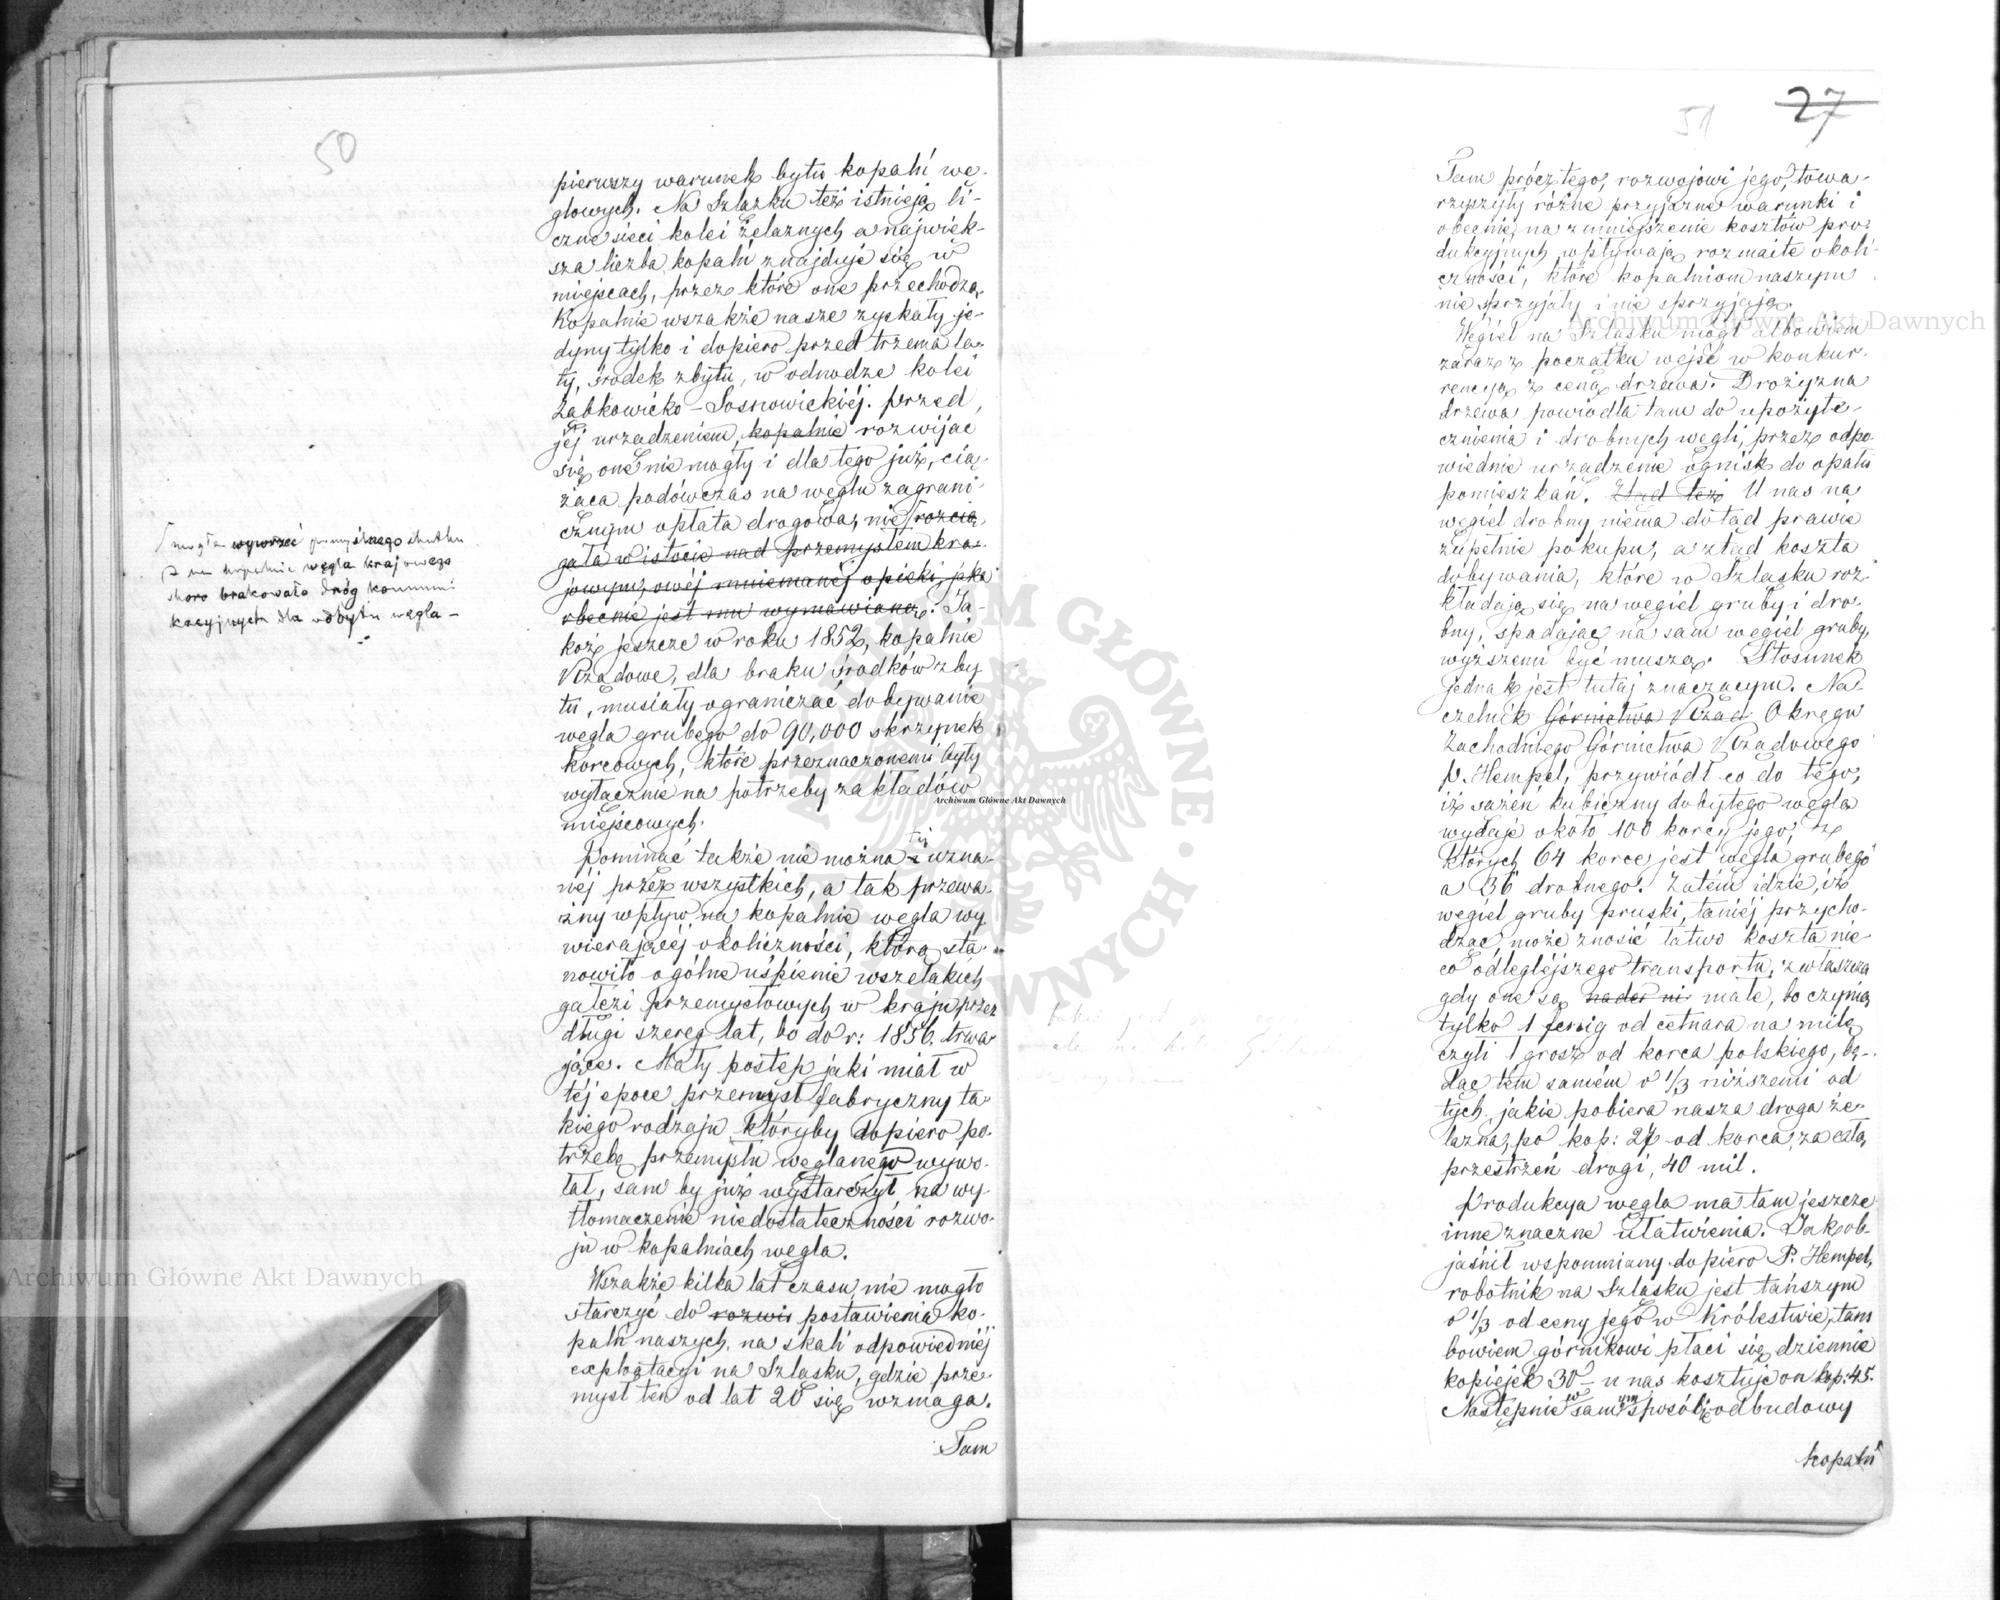 50
pierwszy warunek bytu kopalń wę-
glowych. Na Szlązku też istnieją li-
czne sieci kolei żelaznych a najwięk-
sza liczba kopalń znajduje się w
miejscach, przez które one przechodzą,
Kopalnie wszakże nasze zyskały je-
dyny tylko i dopiero przed trzema la-
ty, środek zbytu, w odnodze kolei
Ząbkowicko-Sosnowickiéj. Przed
jéj urządzeniem, kopalnie rozwijać
się one nie mogły i dla tego już, cią-
żąca podówczas na węglu zagrani-
cznym opłata drogowa, nie rozcią
gała w istocie nad przemysłem kra-
jowym, owéj mniemanéj opieki, jaka
obecnie jest mu wymawianą. Ja-
koż jeszcze w roku 1852, kopalnie
Rządowe, dla braku środków zby
tu, musiały ograniczać dobywanie
węgla grubego do 90,000 skrzynek
korcowych, które przeznaczonemi były
wyłącznie na potrzeby zakładów
miejscowych.
Pominąć także nie można téj uzna-
néj przez wszystkich, a tak przewa-
żny wpływ na kopalnie węgla wy
wierającéj okoliczności, którą sta-
nowiło ogólne uśpienie wszelakich
gałęzi przemysłowych w kraju przez
długi szereg lat, bo do r: 1856. trwa-
jące. Mały postęp jaki miał w
téj epoce przemysł fabryczny ta-
kiego rodzaju któryby dopiero po-
trzebę przemysłu węglanego wywo-
łał, sam by już wystarczył na wy-
tłomaczenie niedostateczności rozwo-
ju w kopalniach węgla.
Wszakże kilka lat czasu nie mogło
starczyć do rozwi postawienia ko-
palń naszych na skali odpowiedniéj
exploatacyi na Szlązku, gdzie prze-
mysł ten od lat 20 się wzmaga.
Tam
mogła wywrzeć pomyślnego skutku
węgla krajowego
skoro brakowało dróg kommuni
kacyjnych dla odbytu węgla -
51
27
Tam prócz tego, rozwojowi jego, towa-
rzyszyły różne przyjazne warunki i
obecnie na zmniejszenie kosztów pro-
dukcyjnych wpływają rozmaite okoli-
czności, które kopalniom naszym
nie sprzyjały i nie sprzyjają.
Węgiel na Szlązku mógł albowiem
zaraz z początku wejść w konkur-
rencyą z ceną drzewa. Drożyzna
drzewa powiodła tam do upożyte-
cznienia i drobnych węgli, przez odpo
wiednie urządzenie ognisk do opału
pomieszkań. Ztąd też U nas na
węgiel drobny niema dotąd prawie
zupełnie pokupu, a ztąd koszta
dobywania, które w Szlązku roz-
kładają się na węgiel gruby i dro-
bny, spadając na sam węgiel gruby,
wyższemi być muszą. Stosunek
jednak jest tutaj znaczącym. Na-
czelnik Górnictwa Rząd Okręgu
Zachodniego Górnictwa Rządowego
P. Hempel, przywiódł co do tego,
iż sążeń kubiczny dobytego węgla
wydaje około 100 korcy jego, z
których 64 korce jest węgla grubego
a 36 drobnego. Zatém idzie, iż
węgiel gruby pruski, taniéj przycho-
dząc, może znosić łatwo koszta nie-
co odleglejszego transportu, zwłaszcza
gdy one są nader ni małe, bo czynią
tylko 1 fenig od cetnara na milę
czyli 1 grosz od korca polskiego, bę-
dąc tém samém o 1/3 niższemi od
tych jakie pobiera nasza droga że-
lazna, po kop: 27 od korca, za całą
przestrzeń drogi, 40 mil.
Produkcya węgla ma tam jeszcze
inne znaczne ułatwienia. Jak ob-
jaśnił wspomniany dopiero P. Hempel,
robotnik na Szlązku jest tańszym
o 1/3 od ceny jego w Królestwie, tam
bowiem górnikowi płaci się dziennie
kopiejek 30 - u nas kosztuje on kop: 45.
Następnie w samym sposobie odbudowy
kopalń
Archiwum Główne Akt Dawnych
Archiwum Główne Akt Dawnych
Archiwum Główne Akt Dawnych
ARCHIWUM GŁÓWNE AKT DAWNYCH